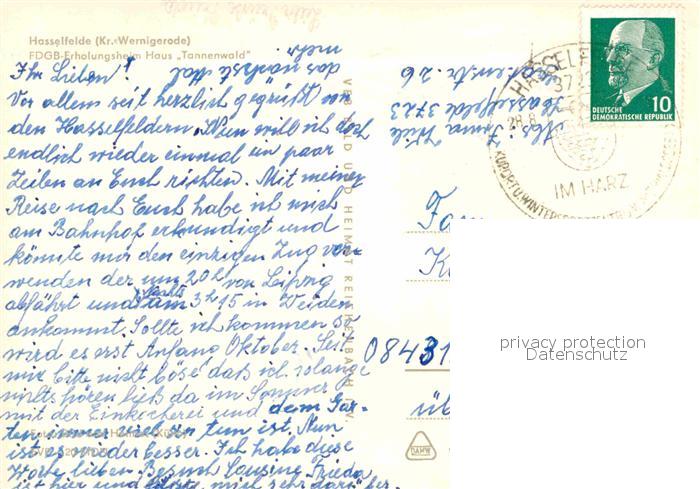 Hasselfelde (Kr. Wernigerode)
FDGB-Erholungsheim Haus „Tannenwald"
Ihr Lieben!
Vor allem seit herzlich gegrüßt von
den Hasselfeldern. Nun will ich doch
endlich wieder einmal ein paar
Zeilen an Euch richten. Mit meiner
Reise nach Euch habe ich mich
am Bahnhof erkundigt und
könnte nur den einzigen Zug ver-
wenden der um 20 h von Leipzig
abfährt und nachts um 3 h 15 in Weiden
ankommt. Sollte ich kommen so
wird es erst Anfang Oktober. Seit
mir bitte nicht böse daß ich solange
nichts hören ließ da im Sommer
mit der Einkocherei und dem Gar-
ten immer viel zu tun ist. Nun
ist es wieder besser. Ich habe diese
Woche lieben Besuch Cousine Frieda
ist hier und freute mich sehr darüber.
das nächste Mal
mehr.
VERLAG BILD UND HEIMAT REICHENBACH
Abs: Anna
Hasselfelde 3723
str. 26
HASSELFELDE
3723
28.8.
IM HARZ
KURORT U. WINTERSPORT
DEUTSCHE
DEMOKRATISCHE REPUBLIK
10
Fa
K
0843
üb
DAMW
privacy protection
Datenschutz